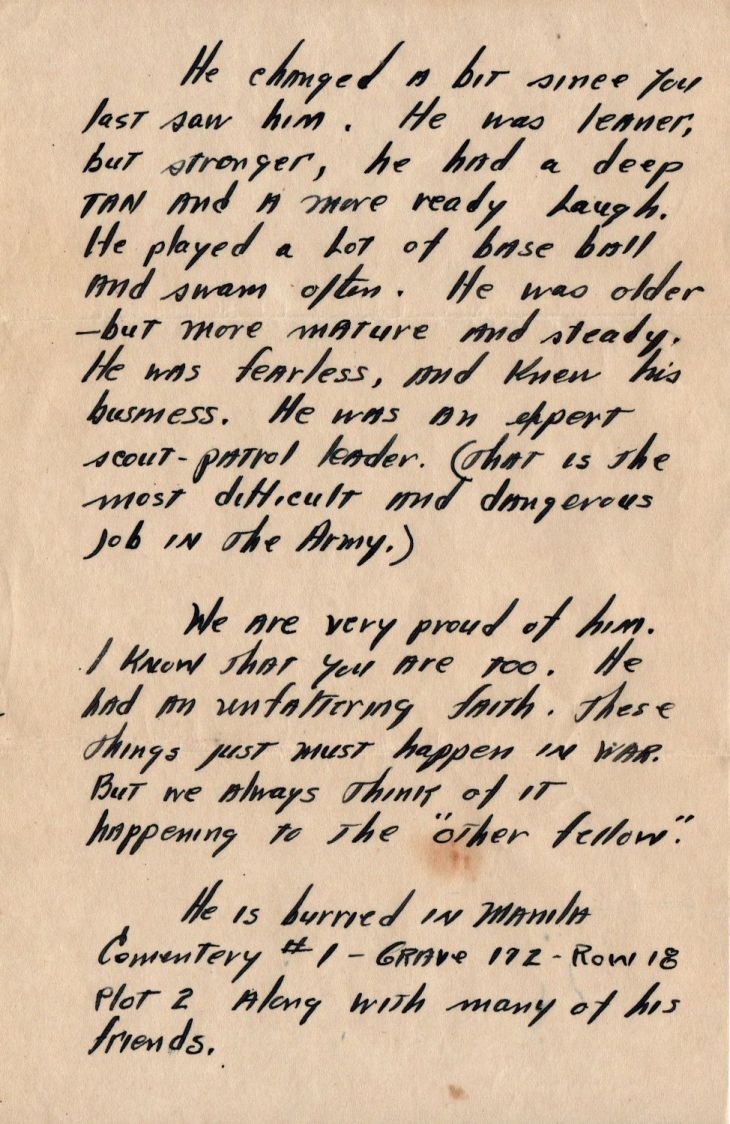 He changed a bit since you
last saw him. He was leaner,
but stronger, he had a deep
tan and a more ready laugh.
He played a lot of base ball
and swam often. He was older
-but more mature and steady.
He was fearless, and knew his
business. He was an expert
scout-patrol leader. (That is the
most difficult and dangerous
job in the Army.)
We are very proud of him.
I know that you are too. He
had an unfaltering faith. These
things just must happen in war.
But we always think of it
happening to the "other fellow".
He is burried in Manila
Comentery #1 - Grave 172 - Row 18
Plot 2 along with many of his
friends.